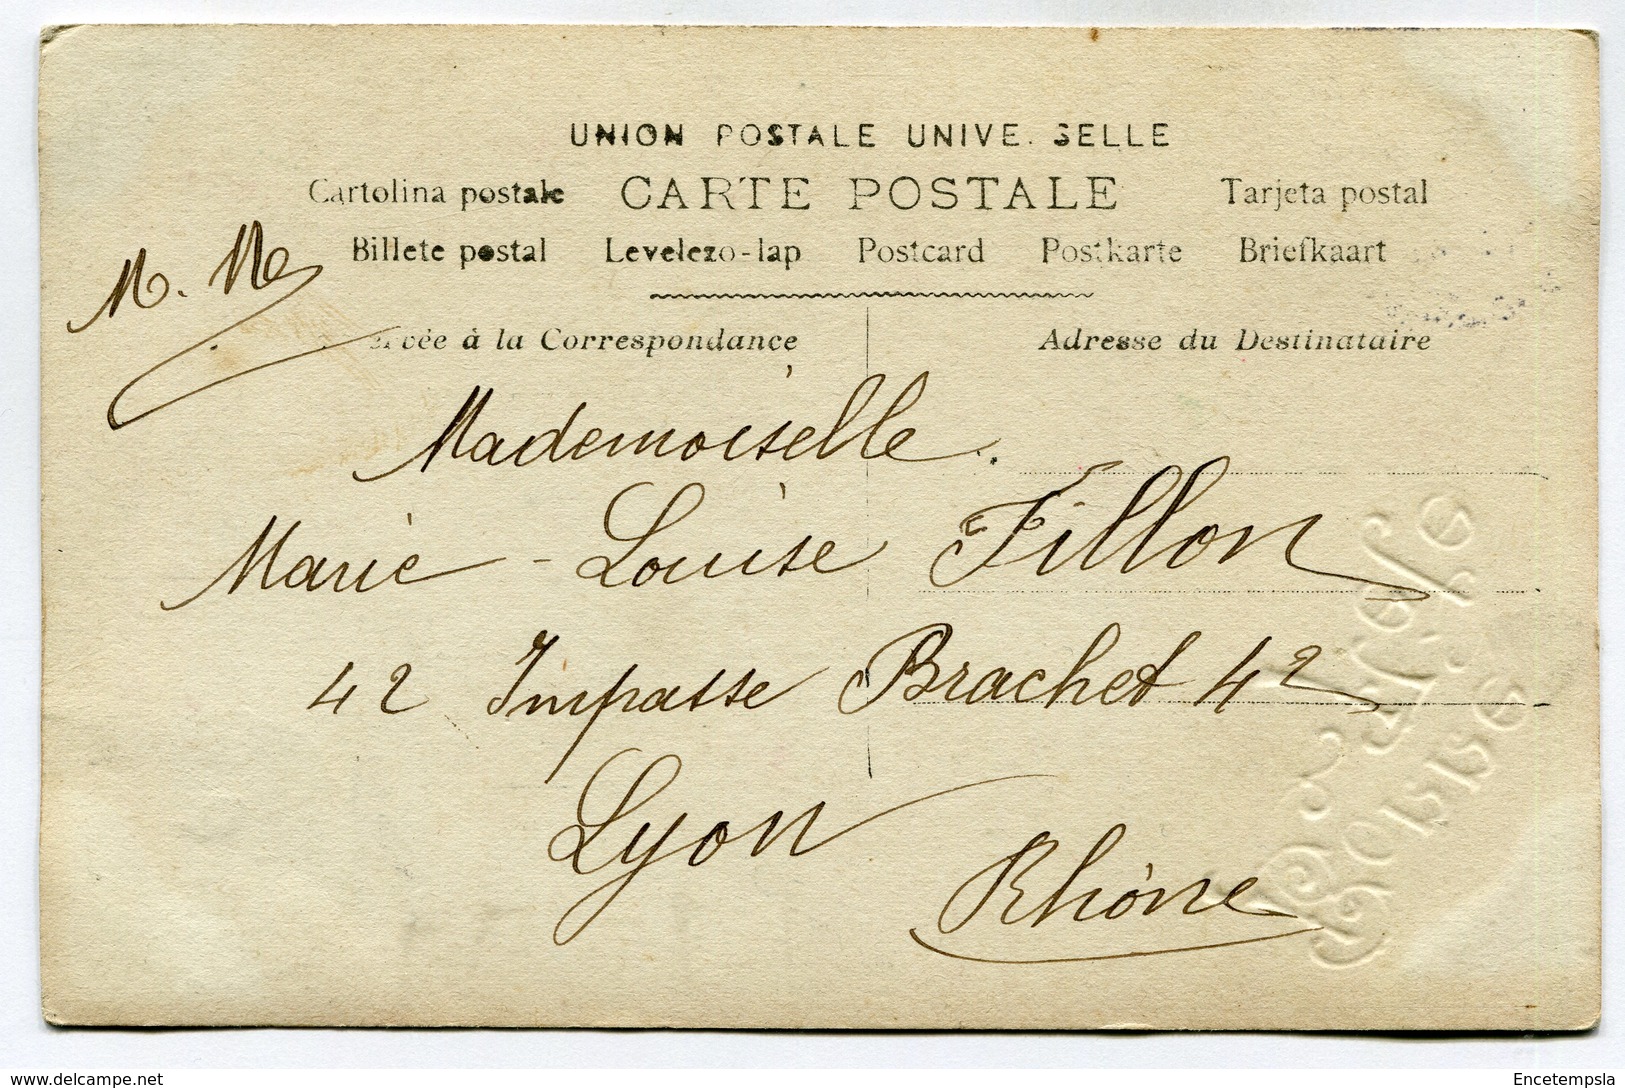 UNION POSTALE UNIVE. SELLE
Cartolina postale CARTE POSTALE Tarjeta postal
Billete postal Levelezo-lap Postcard Postkarte Briefkaart
M. Me
à la Correspondance Adresse du Destinataire
Mademoiselle.
Marie-Louise Fillon
42 Impasse Brachet 42
Lyon
Rhône
delcampe.net
Encetempsla